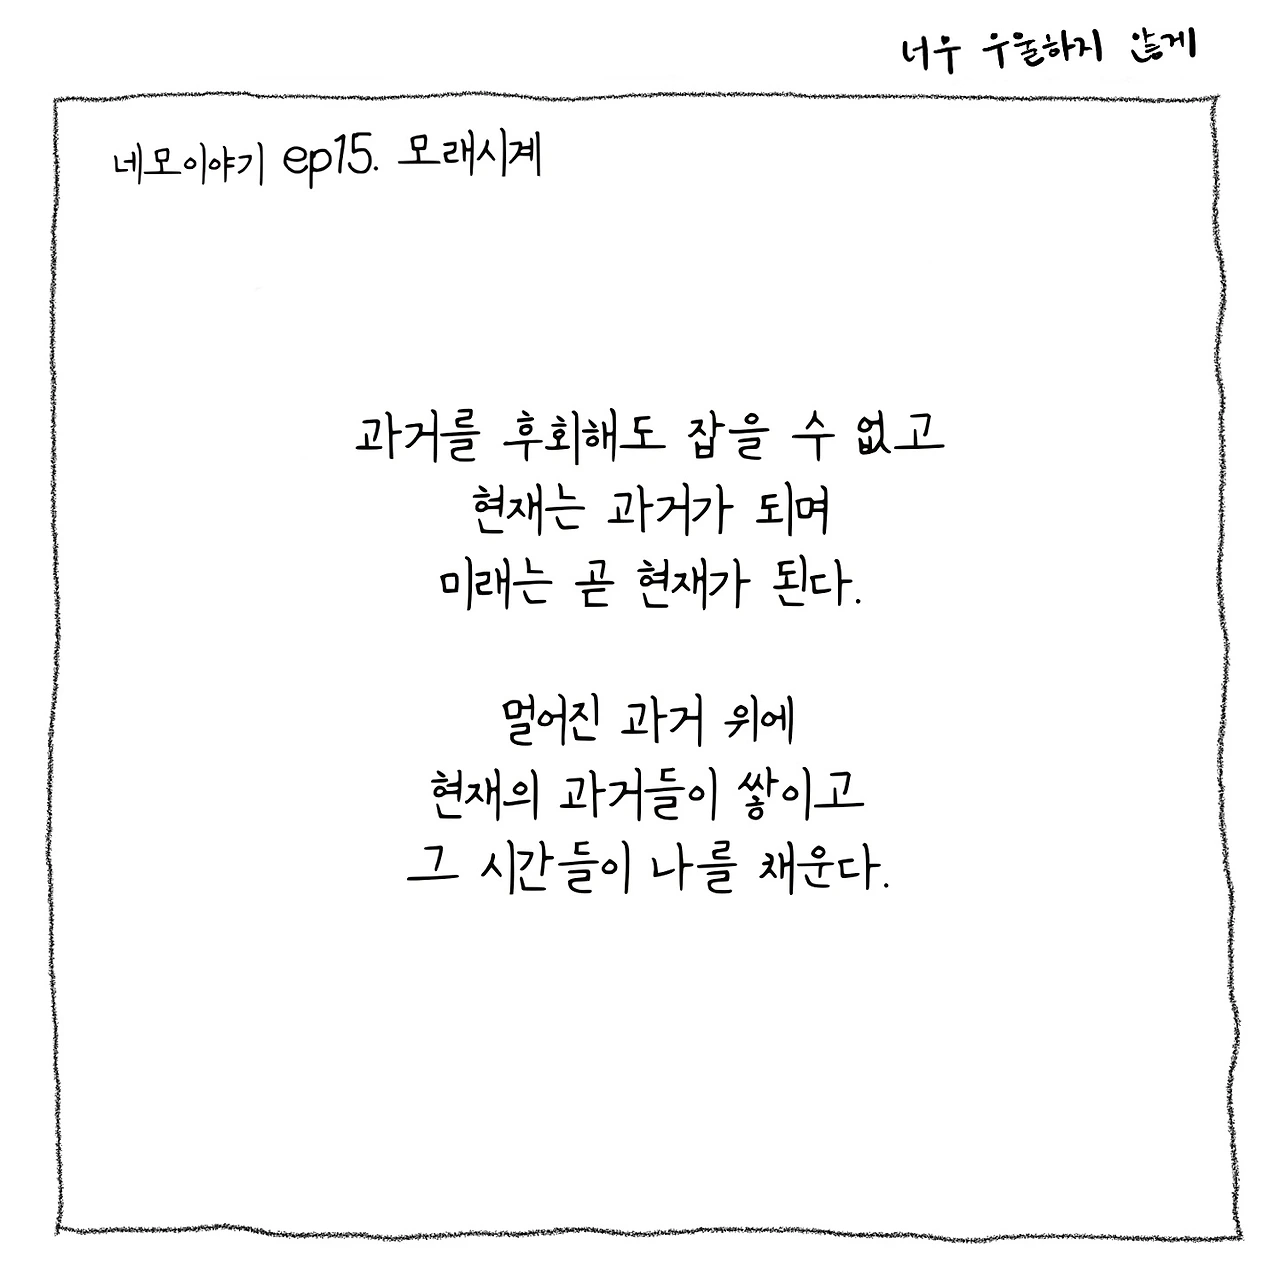 너우 우울하지 않게
네모이야기 ep15. 모래시계
과거를 후회해도 잡을 수 없고
현재는 과거가 되며
미래는 곧 현재가 된다.
멀어진 과거 위에
현재의 과거들이 쌓이고
그 시간들이 나를 채운다.